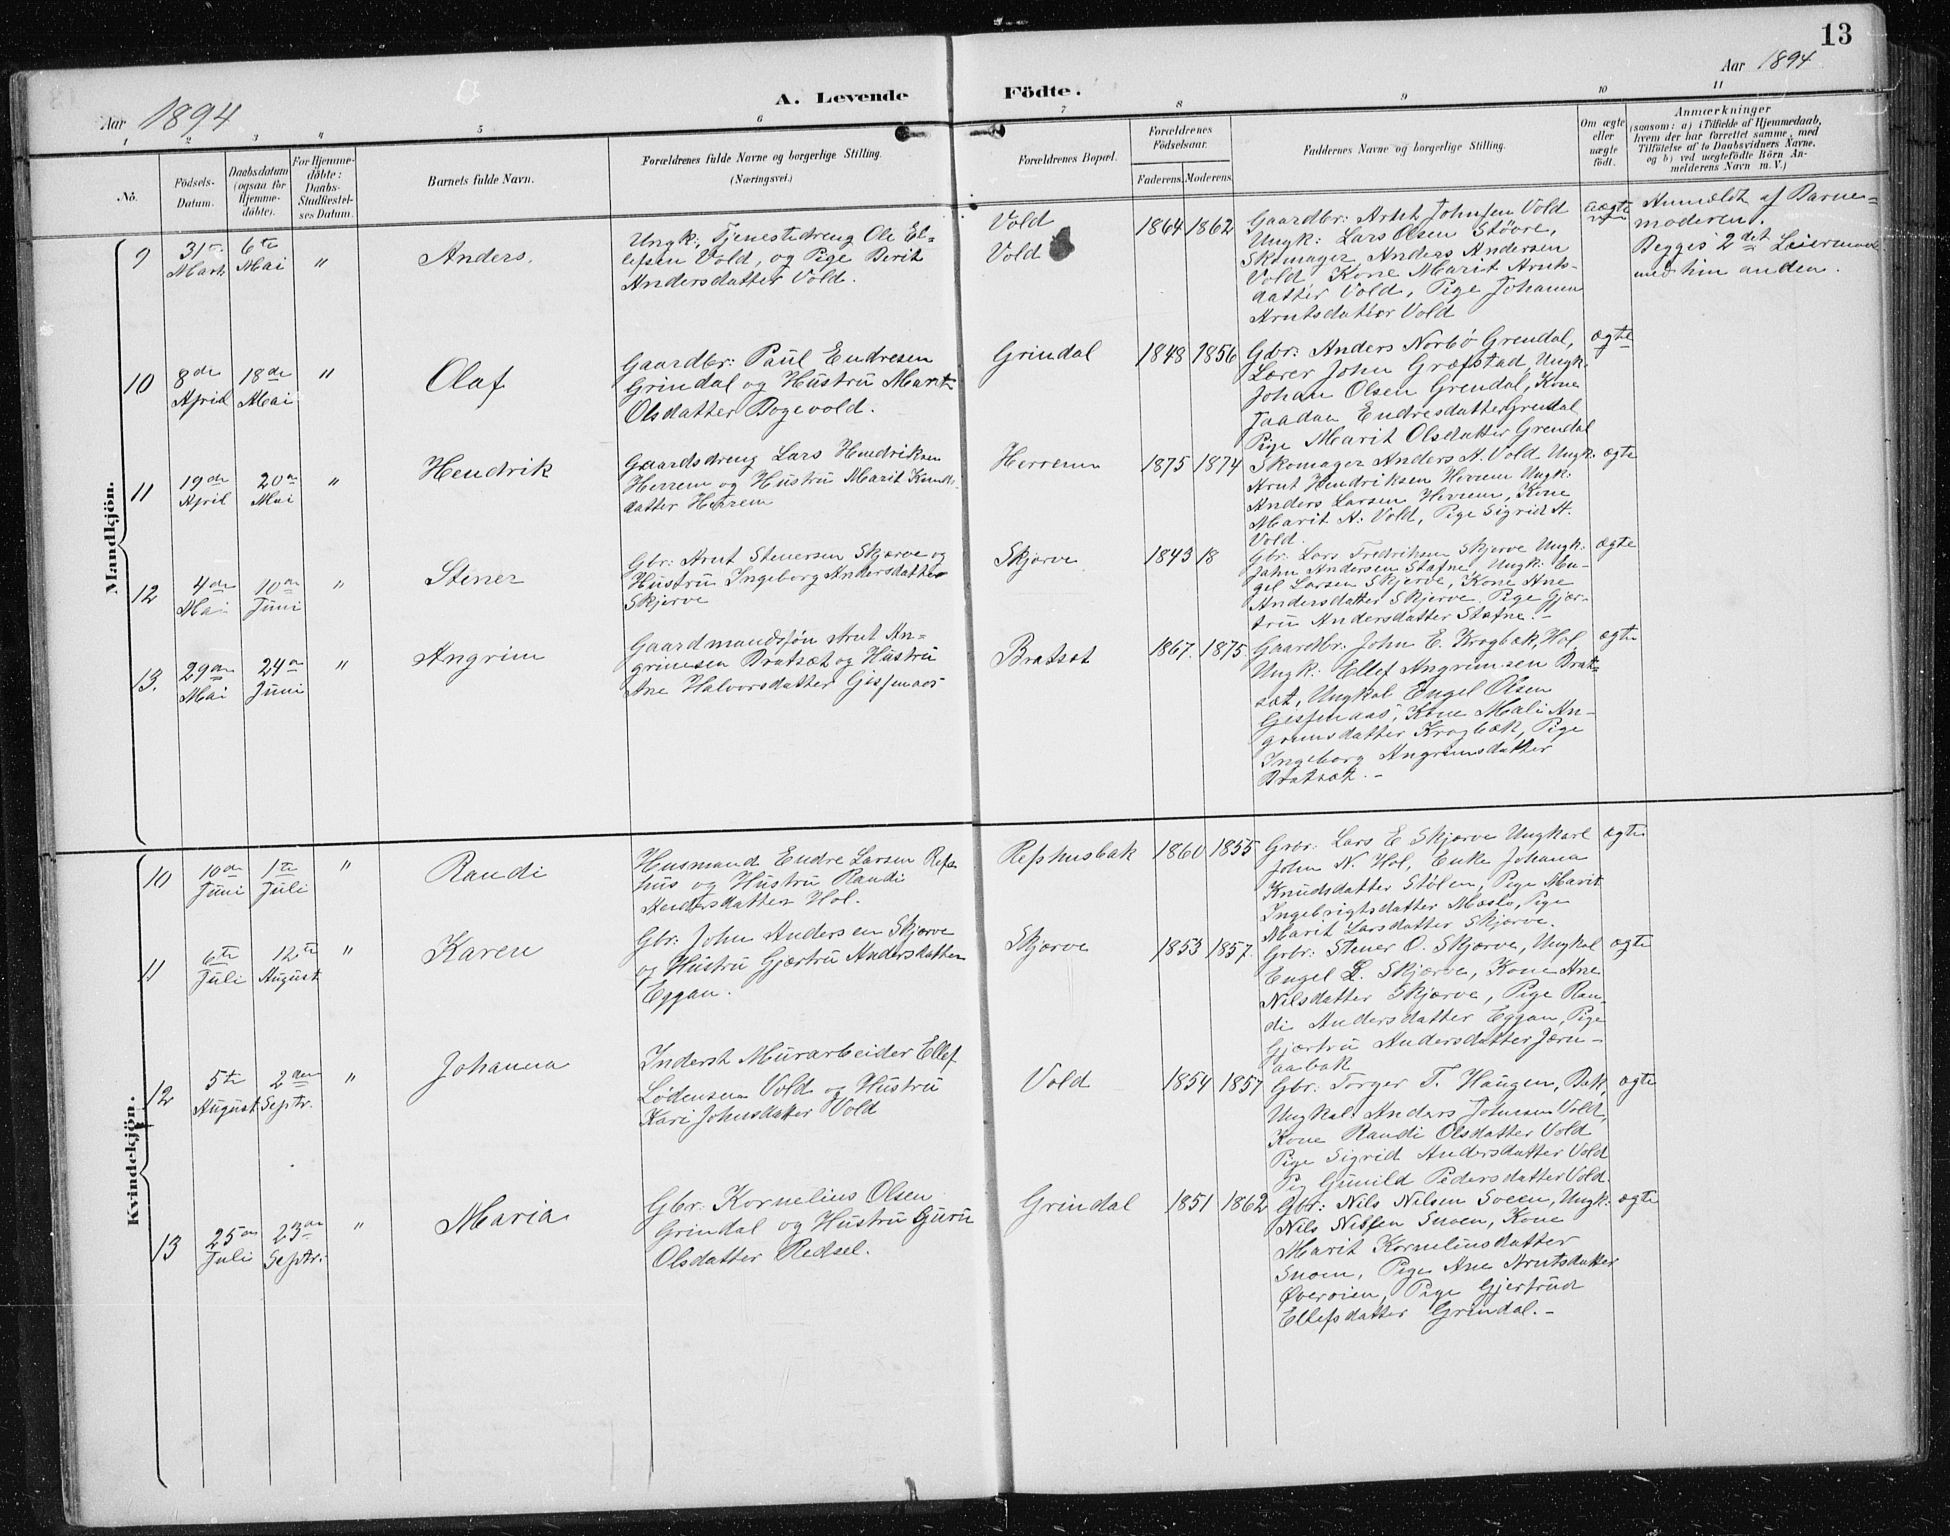 13
Aar 1894
A. Levende Födte.
Aar 1894
1 2 3 4 5 6 7 8 9 10 11
No.
Födsels-Datum.
Daabsdatum (ogsaa for Hjemme-döbte).
For Hjemme-döbte: Daabs-Stadfæstel-ses Datum.
Barnets fulde Navn.
Forældrenes fulde Navne og borgerlige Stilling. (Næringsvei.)
Forældrenes Bopæl.
Forældrenes Födselsaar.
Faderens. Moderens.
Faddernes Navne og borgerlige Stilling.
Om ægte eller uægte födt.
Anmærkninger
(saasom: a) i Tilfælde af Hjemmedaab, hvem der har forrettet samme, med Tilföielse af to Daabsvidners Navne, og b) ved uægtefödte Börn An-melderens Navn m. V.)
Mandkjön.
9
31te Marts
6te Mai
"
Anders.
Ungk: Tjenestedreng Ole El=
lefsen Vold, og Pige Berit
Andersdatter Vold.
Vold
Vold
1864 1862
Gaardbr: Arnt Johnsen Vold
Ungk: Lars Olsen Støvre,
Skomager Anders Andersen
Vold, Kone Marit Arnts-
datter Vold, Pige Johanna
Arntsdatter Vold
uægte
Anmeldt af Barne=
moderen.
Begges 2det Leiermaal
med hinanden.
10
8de April
18de Mai
"
Olaf
Gaardbr: Paul Endresen
Grindal og Hustru Marit
Olsdatter Bogevold.
Grindal
1848 1856
Gbr: Anders Norbø Grendal,
Lærer John Græfstad, Ungk.
Johan Olsen Grendal, Kone
Endresdatter Grendal
Pige Marit Olsdatter Grendal
ægte
11
19de April
20de Mai
"
Hendrik
Gaardsdreng Lars Hendriksen
Herrem og Hustru Marit Knuds-
datter Herrem
Herrem
1875 1874
Skomager Anders A. Vold, Ungk:
Arnt Hendriksen Herrem, Ungk:
Anders Larsen Herrem, Kone
Marit A. Vold, Pige Sigrid A.
Vold.
ægte
12
4de Mai
10de Juni
"
Stener
Gbr: Arnt Stenersen Skjærve og
Hustru Ingeborg Andersdatter
Skjerve
Skjørve
1843 18
Gbr: Lars Fredriksen Skjerve Ungk:
John Andersen Stafne, Ungk: En-
gel Larsen Skjerve, Kone Ane
Andersdatter Skjerve, Pige Gjær-
tru Andersdatter Stafne.-
ægte
13.
29de Mai
24de Juni
"
Angrim
Gaardmandssøn Arnt An=
grimsen Bratsæt og Hustru
Ane Halvorsdatter Gisfnaas
Bratsæt
1867. 1875
Gaardbr. John E. Krogbæk, Hol,
Ungk: Ellef Angrimsen Brat-
sæt, Ungkal Engel Olsen
Gisfnaas, Kone Mali An-
grimsdatter Krogbæk, Pige
Ingeborg Angrimsdatter
Bratsæt.-
ægte
Kvindekjön.
10
10de Juni
1te Juli
"
Randi
Husmand Endre Larsen Refs-
hus og Hustru Randi
Andersdatter Hol.
Refshusbak
1860 1855
Gbr: Lars E Skjærve Ungkarl
John N. Hol, Enke Johana
Knudsdatter Stølen, Pige Marit
Ingebrigtsdatter Moslo, Pige
Marit Larsdatter Skjærve.
ægte
11
6te Juli
12te August
"
Karen
Gbr: John Andersen Skjærve
og Hustru Gjærtru Andersdatter
Eggan.
Skjærve
1853 1857.
Grbr: Stener O. Skjærve, Ungkal
Engel L. Skjærve, Kone Ane
Nilsdatter Skjærve, Pige Ran-
di Andersdatter Eggan, Pige
Gjærtru Andersdatter Jærn-
aabak
ægte
12
5te August
2den Septr.
"
Johanna
Inderst Murarbeider Ellef
Lødensen Vold og Hustru
Kari Johnsdatter Vold
Vold
1854 1857
Gbr: Torger T. Haugen, Bak,
Ungkal: Anders Johnsen Vold,
Kone Randi Olsdatter Vold
Pige Sigrid Andersdatter Vold
Pig Gunild Pedersdatter Vold.
ægte
13
25de Juli
23de Septr.
"
Maria
Gbr: Kornelius Olsen
Grindal og Hustru Guru
Olsdatter Redsel.
Grindal
1851 1862
Gbr: Nils Nilsen Snoen, Ungk:
Nils Nilsen Snoen, Kone
Marit Korneliusdatter
Snoen, Pige Ane Arntsdatter
Øverøien, Pige Gjertrud
Ellefsdatter Grindal.-
ægte